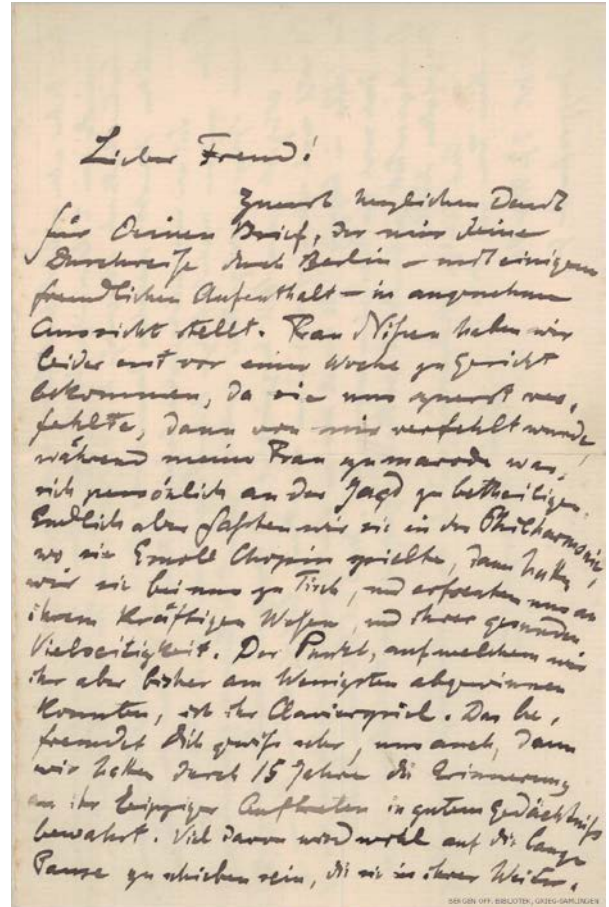 Lieber Freund!
Zuerst herzlichen Dank
für Deinen Brief, der mir Deine
Durchreise durch Berlin – mit einigem
freundlichen Aufenthalt – in angenehme
Aussicht stellt. Frau Nissen haben wir
leider erst vor einer Woche zu Gesicht
bekommen, da sie uns zuerst ver,
fehlte, dann von mir verfehlt wurde
während meine Frau zu marode war,
sich persönlich an der Jagd zu betheiligen.
Endlich aber fassten wir sie in der Philharmonie,
wo sie Emoll Chopin spielte, dann hatten
wir sie bei uns zu Tisch, und erfreuten uns an
ihrem kräftigen Wesen, und ihrer gesunden
Vielseitigkeit. Der Punkt, auf welchem wir
ihr aber bisher am Wenigsten abgewinnen
konnten, ist ihr Clavierspiel. Das be,
fremdet Dich gewiss sehr, uns auch, denn
wir hatten durch 15 Jahre die Erinnerung
an ihr Leipziger Auftreten in gutem Gedächtniss
bewahrt. Viel davon wird wohl auf die lange
Pause zu schieben sein, die sie in ihrer Weiter,
BERGEN OFF. BIBLIOTEK, GRIEG-SAMLINGEN